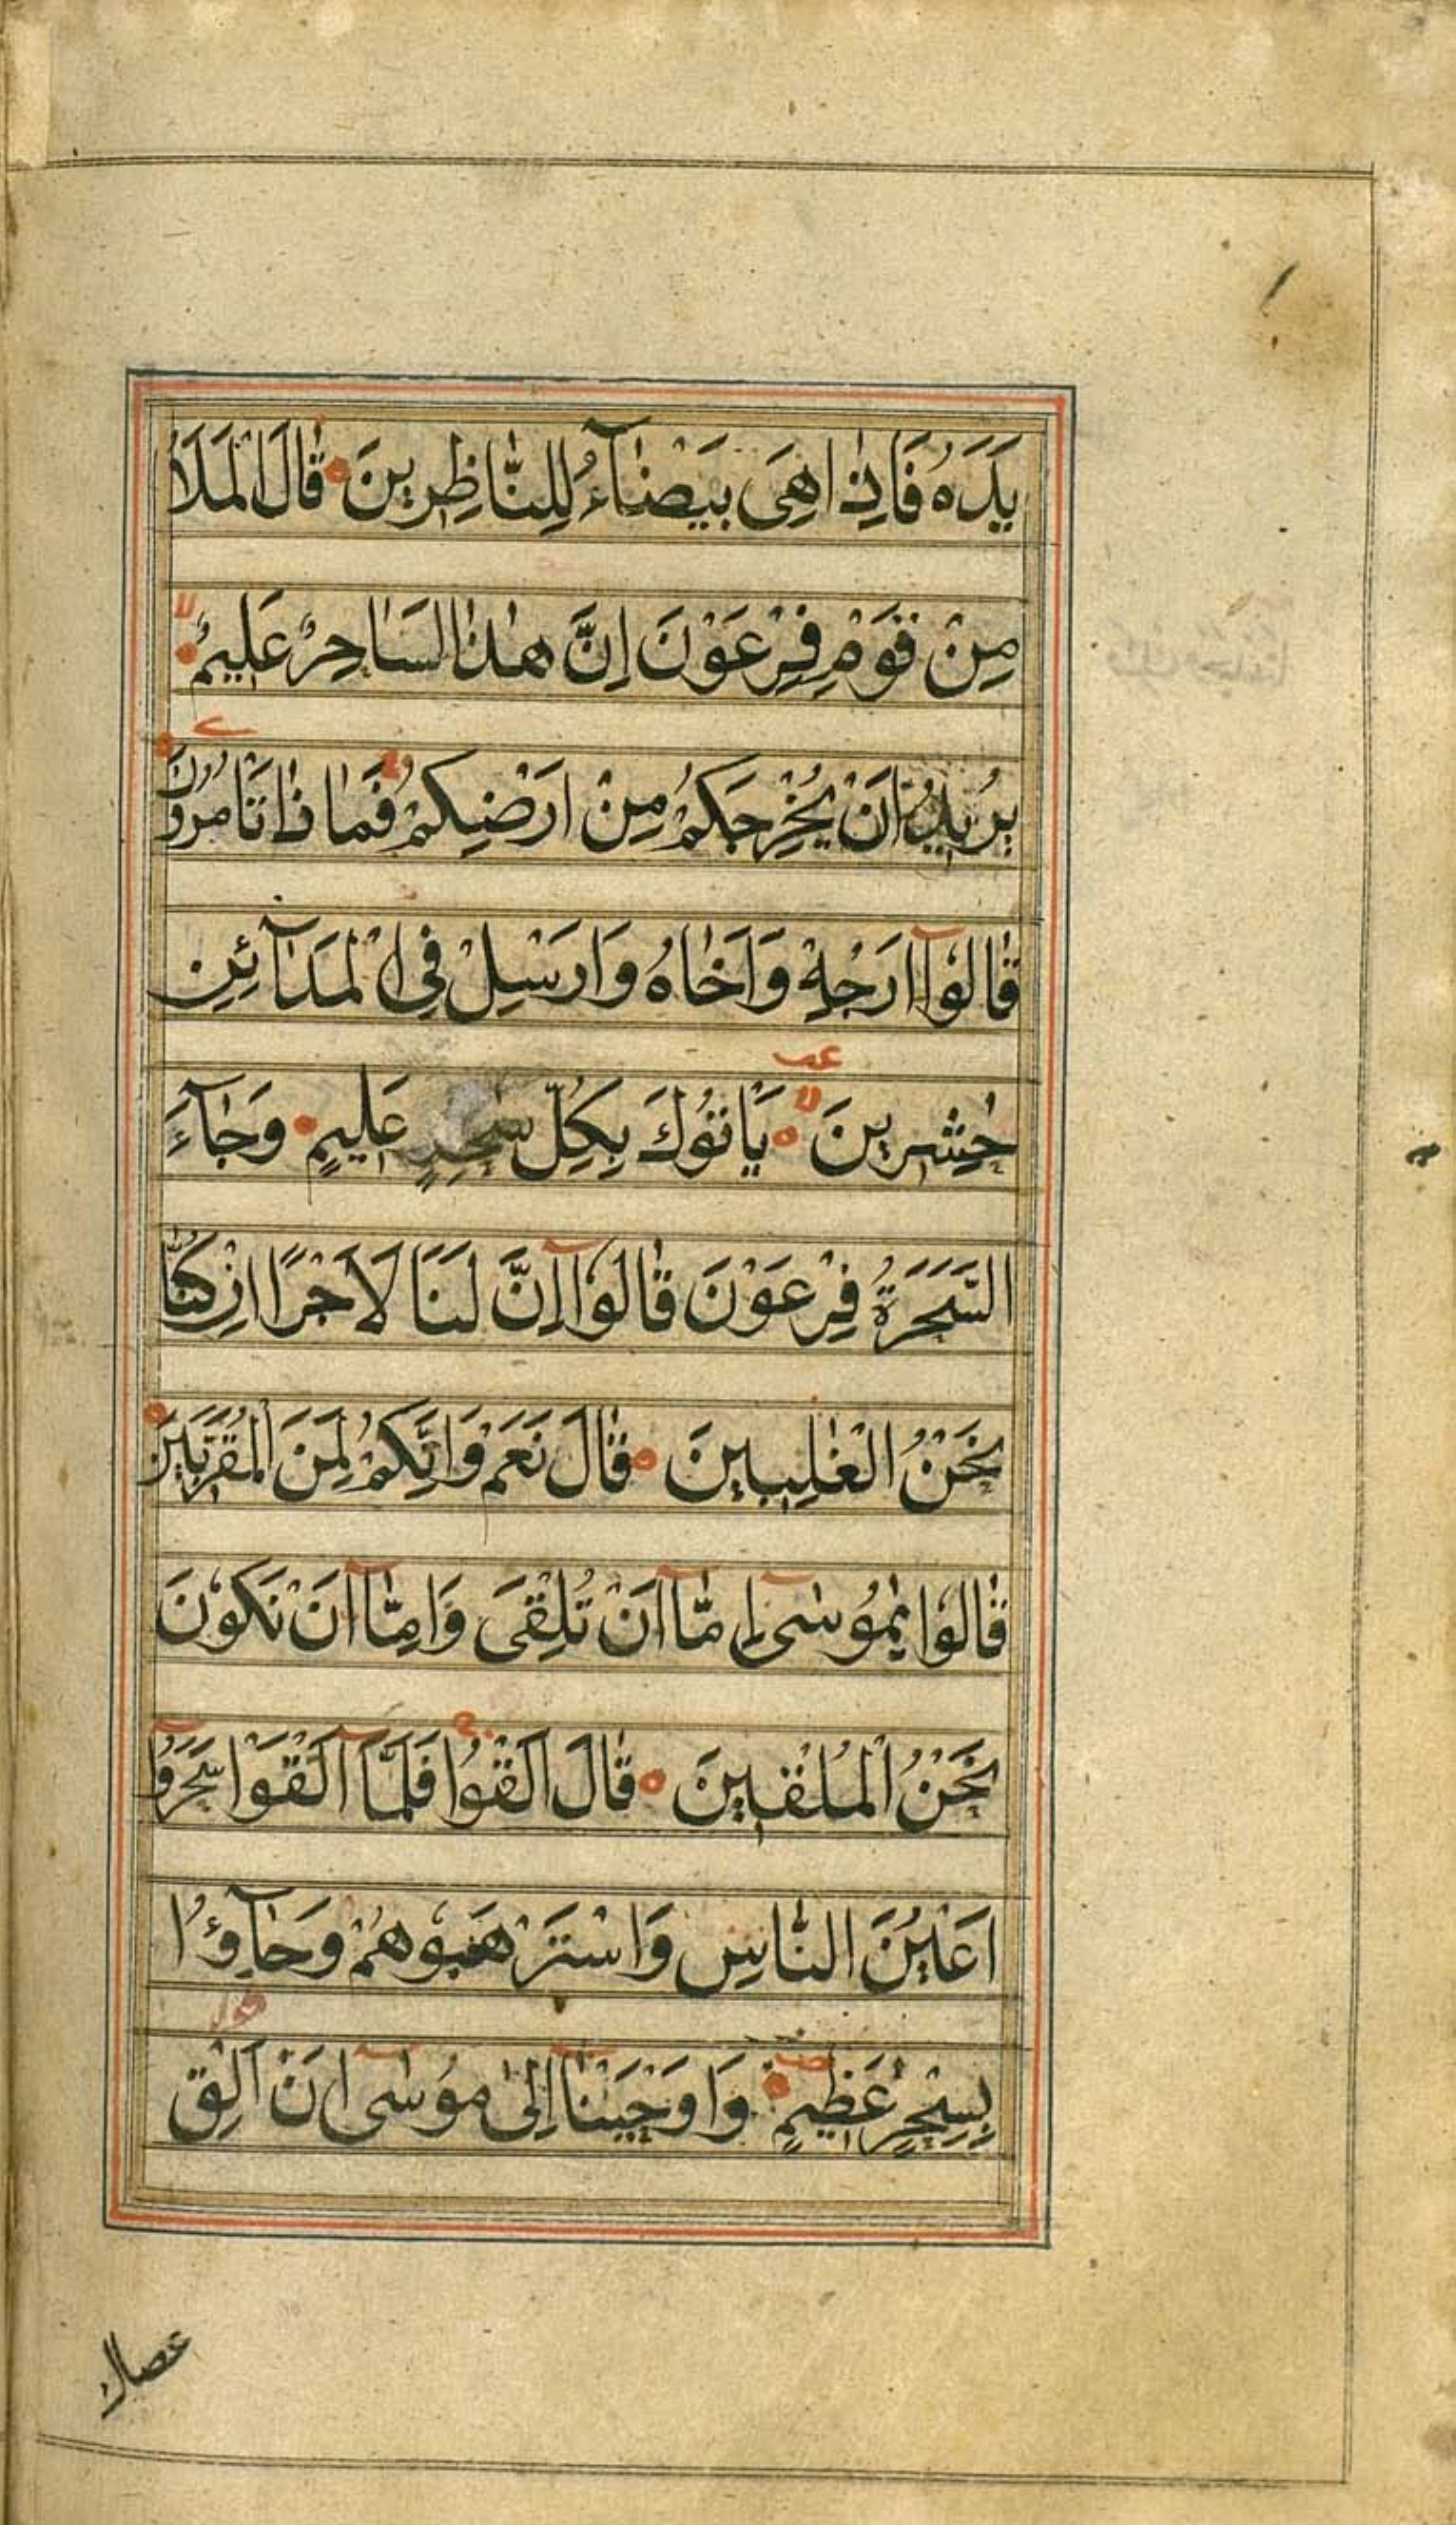 يَدَهُ فَاِذَا هِىَ بَيْضَآءُ لِلنّٰاظِرِينَ قٰالَ الْمَلَاُ
مِنْ قَوْمِ فِرْعَوْنَ اِنَّ هٰذَا لَسَاحِرٌ عَلِيمٌ لا
يُرِيدُ اَنْ يُخْرِجَكُمْ مِنْ اَرْضِكُمْ فَمٰا ذٰا تَاْمُرُونَ
قٰالُوٓا اَرْجِهْ وَاَخٰاهُ وَاَرْسِلْ فِى الْمَدَآئِنِ
حٰشِرِينَ لا يَاْتُوكَ بِكُلِّ سٰحِرٍ عَلِيمٍ وَجٰآءَ
السَّحَرَةُ فِرْعَوْنَ قٰالُوٓا اِنَّ لَنَا لَاَجْرًا اِنْ كُنّٰا
نَحْنُ الْغٰلِبِينَ قٰالَ نَعَمْ وَاِنَّكُمْ لَمِنَ الْمُقَرَّبِينَ
قٰالُوا يٰمُوسٰٓى اِمّٰٓا اَنْ تُلْقِىَ وَاِمّٰٓا اَنْ نَكُونَ
نَحْنُ الْمُلْقِينَ قٰالَ اَلْقُوا فَلَمَّآ اَلْقَوْا سَحَرُوٓا
اَعْيُنَ النّٰاسِ وَاسْتَرْهَبُوهُمْ وَجٰآؤُا
بِسِحْرٍ عَظِيمٍ وَاَوْحَيْنٰٓا اِلىٰ مُوسٰٓى اَنْ اَلْقِ
عصاك